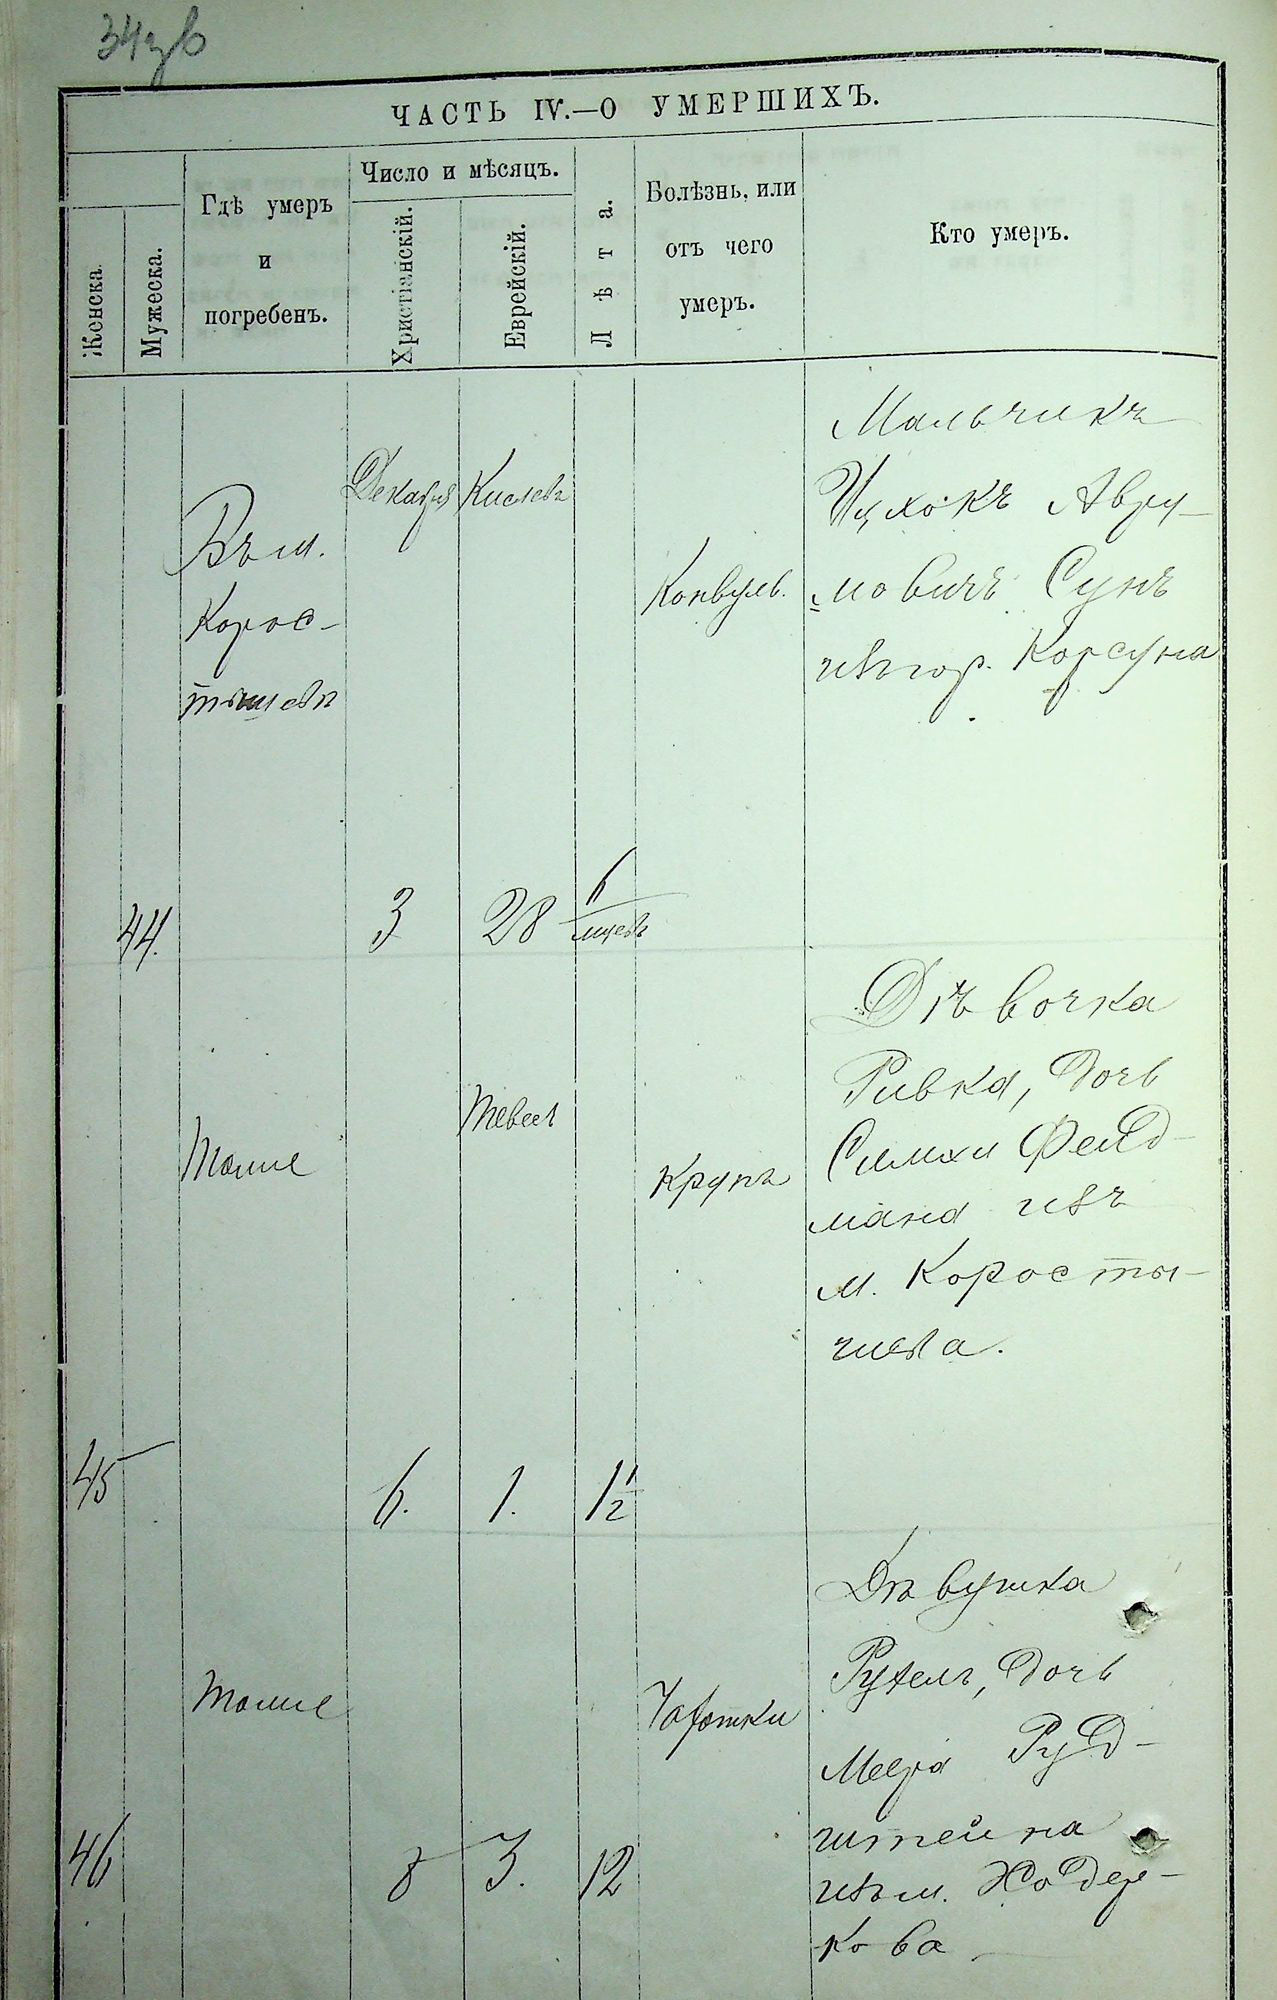 34зв
ЧАСТЬ IV.—О УМЕРШИХЪ.
Женска.
Мужеска.
Гдѣ умеръ
и
погребенъ.
Число и мѣсяцъ.
Христіанскій.
Еврейскій.
Лѣта.
Болѣзнь, или
отъ чего
умеръ.
Кто умеръ.
44.
Въ м.
Корос-
тышевѣ
Декабря
3
Кислевъ
28
6
мцевъ
Конвуль.
Мальчикъ
Ицхокъ Авру-
мовичъ Сунъ
изъ гор. Корсуна
45
Тоже
6.
Тевесъ
1.
1 1/2
Крупъ
Дѣвочка
Ривка, дочь
Симхи Фельд-
мана изъ
м. Коросты-
шева.
46
Тоже
8
3.
12
Чахотки
Дѣвушка
Рухель, дочь
Меера Руд-
штейна
изъ м. Ходор-
кова